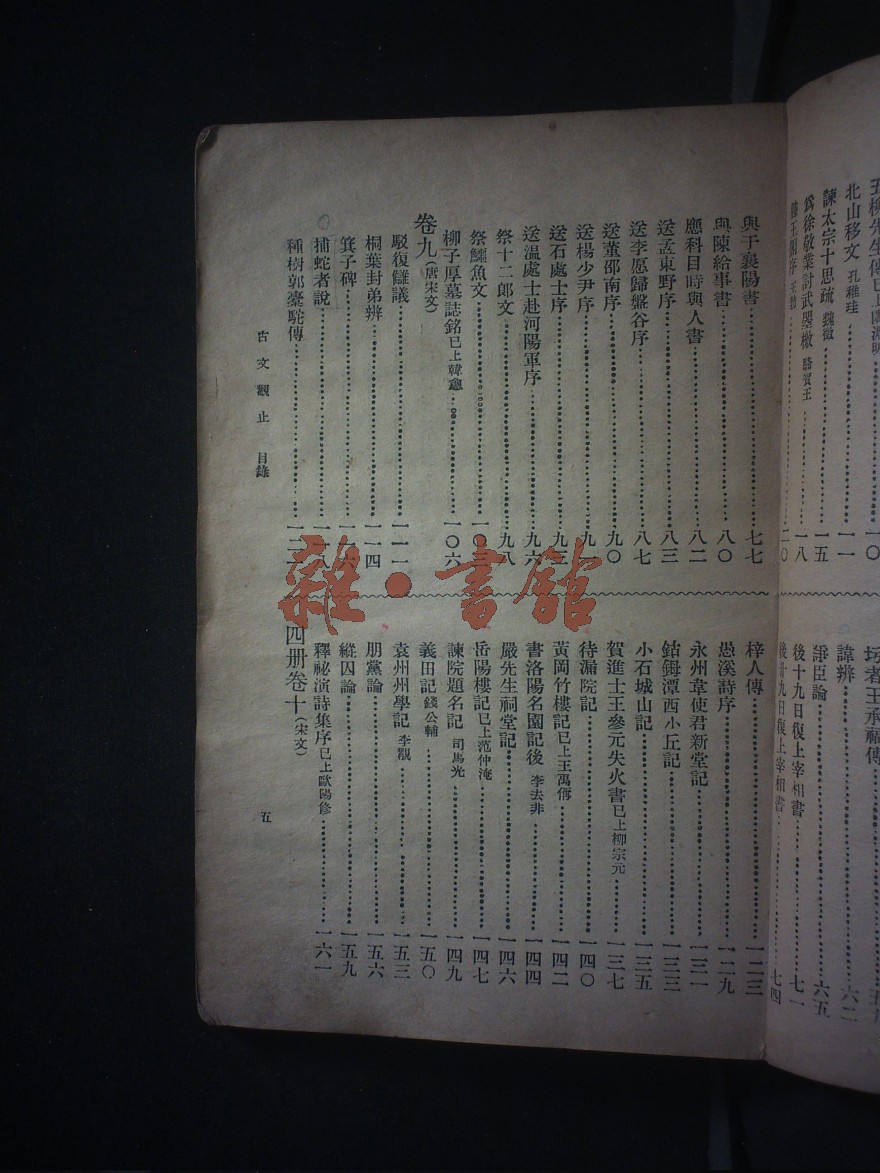 北山移文 孔稚珪 一一
諫太宗十思疏 魏徵 一五
爲徐敬業討武曌檄 駱賓王 一八
諱辨 六二
諍臣論 六五
後十九日復上宰相書 七一
後廿九日復上宰相書 七四
與于襄陽書 七七
與陳給事書 八〇
應科目時與人書 八二
送孟東野序 八三
送李愿歸盤谷序 八七
送董邵南序 九〇
送楊少尹序
送石處士序
送溫處士赴河陽軍序 九六
祭十二郎文 九八
祭鱷魚文
柳子厚墓誌銘已上韓愈 一〇六
卷九(唐宋文)
駁復讎議 一一一
桐葉封弟辨 一一四
箕子碑 一一六
捕蛇者說 一一八
種樹郭橐駝傳
梓人傳 一二三
愚溪詩序 一二九
永州韋使君新堂記 一三一
鈷鉧潭西小丘記 一三三
小石城山記 一三五
賀進士王參元失火書已上柳宗元 一三七
待漏院記 一四〇
黃岡竹樓記已上王禹偁 一四二
書洛陽名園記後 李去非 一四四
嚴先生祠堂記 一四六
岳陽樓記已上范仲淹 一四七
諫院題名記 司馬光 一四九
義田記 錢公輔 一五〇
袁州州學記 李覯 一五三
朋黨論 一五六
縱囚論 一五九
釋祕演詩集序已上歐陽修 一六一
四册卷十(宋文)
古文觀止 目錄
五
雜·書館